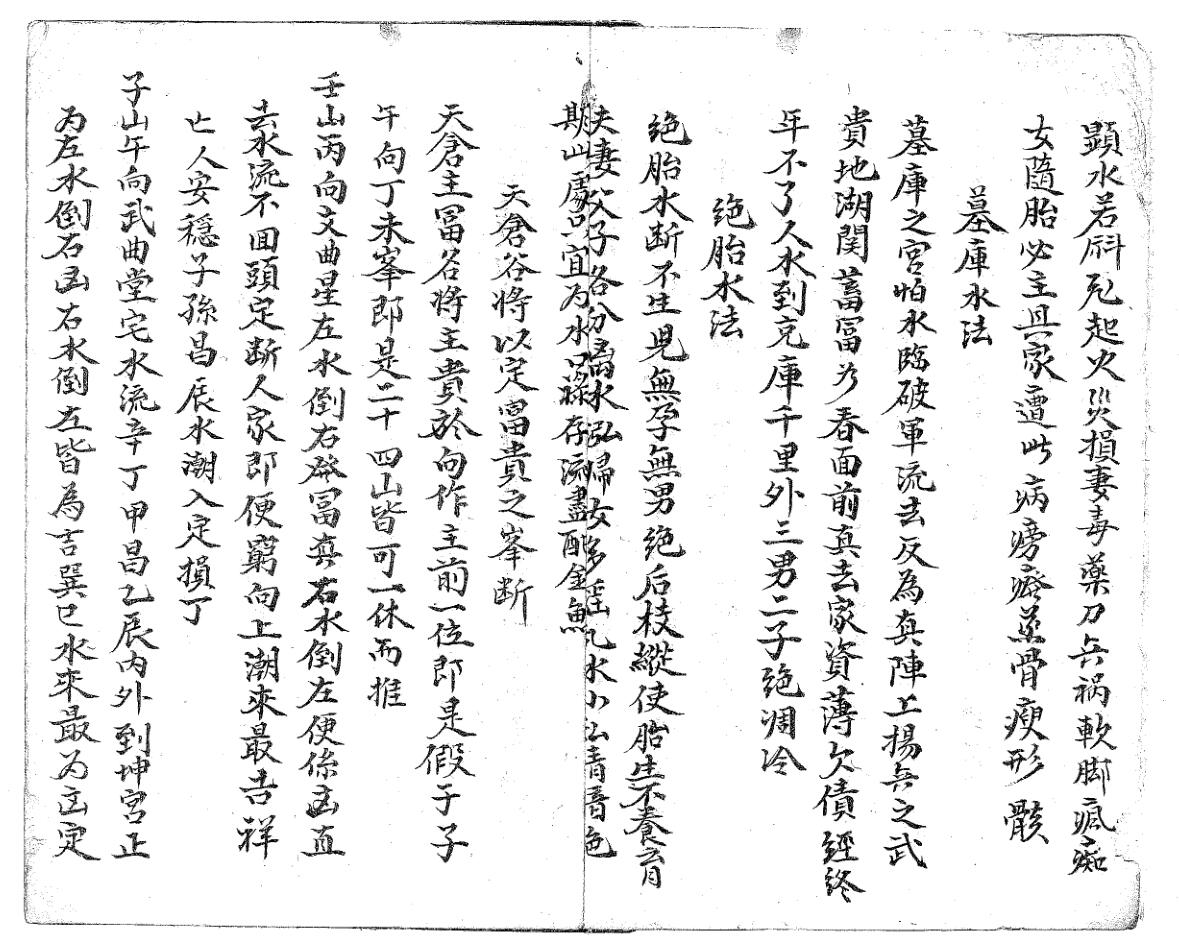 顕水若斜飛起火災損妻毒藥刀兵禍軟脚瘋痴
女隨胎必主其家遭此病癆瘵蒸骨瘦形骸
墓庫水法
墓庫之宮怕水臨破軍流去反為真陣上揚兵之武
貴地湖関蓄冨乃春面前真去家資薄欠債經終
年不了人水到克庫千里外三男二子绝凋冷
绝胎水法
绝胎水断不生児無孕無男绝后枝縦使胎生不養育
夫妻父子各分离水泓帰女多凡水小泓青音色
期山處只宜为水口祿存流盡配金魚
天倉谷将以定冨貴之峯断
天倉主冨谷将主貴於向作主前一位即是假于子
午向丁未峯即是二十四山皆可一休而推
壬山丙向文曲星左水倒右發冨真右水倒左便係凶直
去水流不囬頭定断人家即便窮向上潮來最吉祥
亡人安穩子孫昌辰水潮入定損丁
子山午向武曲堂宅水流辛丁甲昌乙辰内外到坤宮正
为左水倒右凶右水倒左皆為吉巽巳水來最为凶定